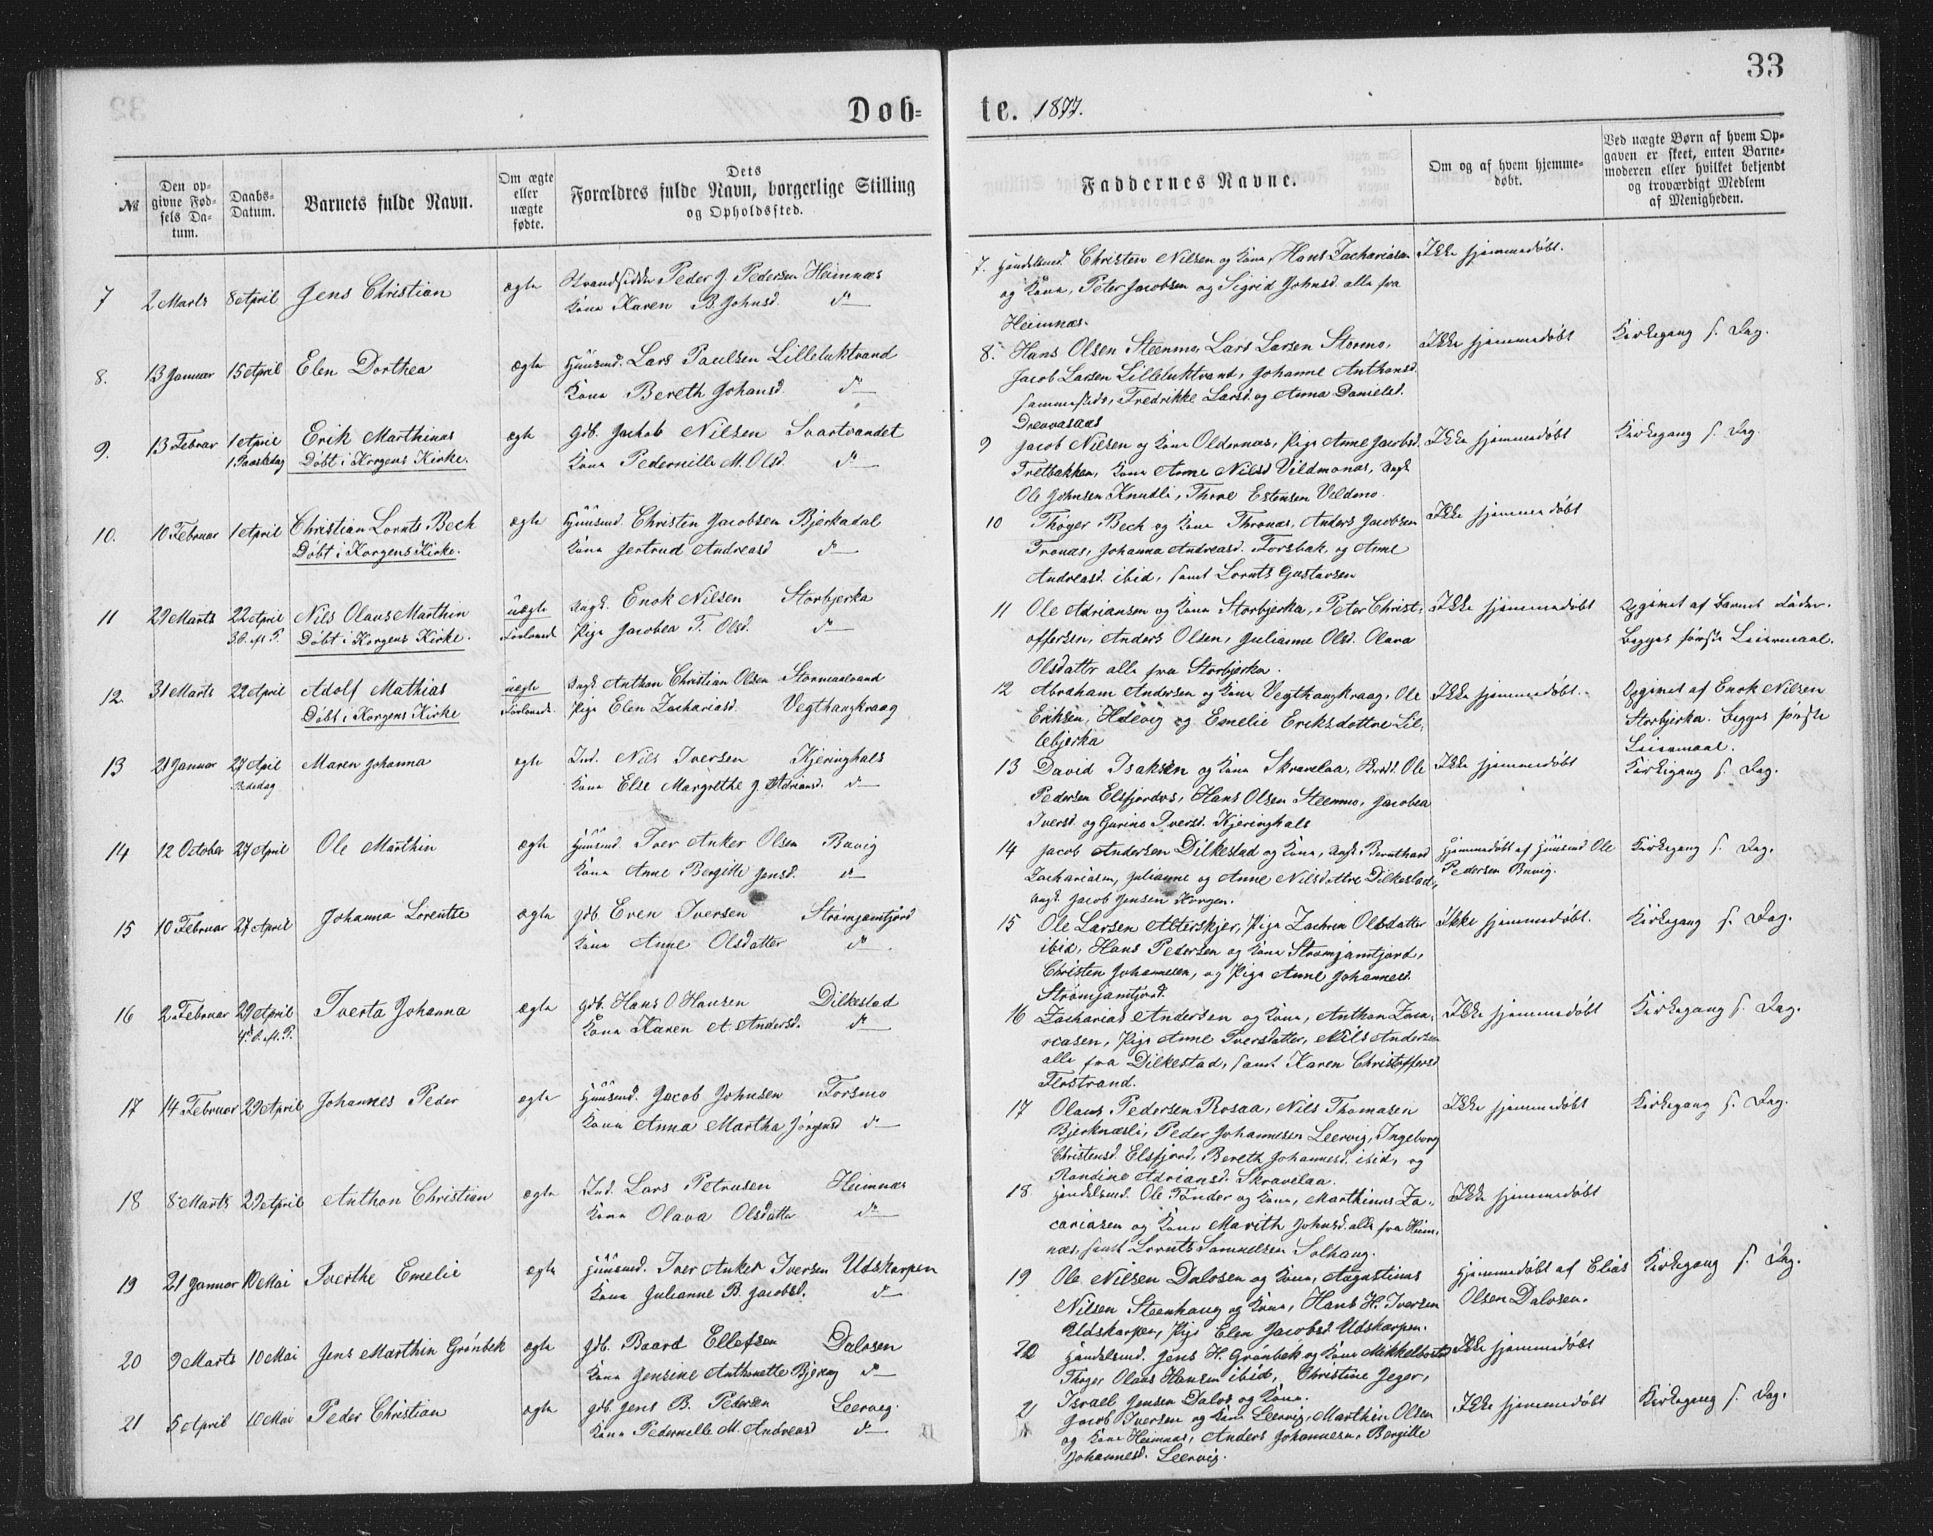 33
Døbte. 1877.
№
Den opgivne Fødsels Datum.
Daabs-Datum.
Barnets fulde Navn.
Om ægte eller uægte fødte.
Dets Forældres fulde Navn, borgerlige Stilling og Opholdssted.
Faddernes Navne.
Om og af hvem hjemmedøbt.
Ved uægte Børn af hvem Opgaven er skeet, enten Barnemoderen eller hvilket bekjendt og troværdigt Medlem af Menigheden.
7 2 Marts 8 April Jens Christian ægte Strandsidder Peder J Pedersen Heimnæs
Kone Karen B. Johnsd. do
7. Handelsmd. Christen Nilsen og Kone, Hans Zachariasen Ikke hjemmedøbt.
og Kone, Peter Jacobsen og Sigrid Johnsd. alle fra
Heimnæs.
8. 13 Januar 15 April Elen Dorthea ægte Huusmd. Lars Paulsen Lilleluktvand
Kone Bereth Johansd. do
8. Hans Olsen Steenmo, Lars Larsen Stormo, Ikke hjemmedøbt Kirkegang s. Dag.
Jacob Larsen Lilleluktvand, Johanne Anthonsd.
sammesteds, Fredrikke Larsd. og Anna Danielsd.
Drevvasaas
9. 13 Februar 1 April Erik Marthinus ægte Gdb. Jachob Nilsen Svartvandet
1 Paaskedag Døbt i Korgens Kirke. Kone Pedernille M. Olsd. do
9 Jacob Nilsen og Kone Oldernæs, Pige Anne Jacobsd. Ikke hjemmedøbt Kirkegang s. Dag.
Tretbakken, Kone Anne Nilsd Vildmonæs, Ungk.
Ole Johnsen Knudli, Thore Estensen Veldmo.
10. 10 Februar 1 April Christian Lornts Bech ægte Huusmd. Christen Jacobsen Bjerkadal
Døbt i Korgens Kirke. Kone Jertrud Andreasd do
10 Thøger Bech og Kone Thronæs, Anders Jacobsen Ikke hjemmedøbt
Tronæs, Johanna Andreasd. Forsbak, og Anne
Andreasd. ibid, samt Lornts Gustavsen
11 29 Marts 22 April Nils Olaus Marthin uægte Ungk. Enok Nilsen Storbjerka
3 S. eft. P. Døbt i Korgens Kirke. Forlovede. Pige Jacobea T. Olsd. do
11 Ole Adriansen og Kone Storbjerka, Peter Christ- Ikke hjemmedøbt Opgivet af Barnets Fader.
offersen, Anders Olsen, Julianne Olsd. Olava Begges første Leiermaal.
Olsdatter alle fra Storbjerka.
12 31 Marts 22 April Adolf Mathias uægte Ungk. Anthon Christian Olsen Stormaalvand
Døbt i Korgens Kirke Forlovede. Pige Elen Zachariasd. Vegthaugkraag
12 Abraham Andersen og Kone Vegthaugkraag, Ole Ikke hjemmedøbt. Opgivet af Enok Nilsen
Eriksen, Hdevig og Emelie Eriksdøttre Lil- Storbjerka. Begges første
lebjerka Leiermaal.
13 21 Januar 27 April Maren Johanna ægte Ind. Nils Iversen Kjeringhals
Bededag Kone Else Margrethe J. Adriansd. do
13 David Isaksen og Kone Skravelaa, Ole Ikke hjemmedøbt Kirkegang s. Dag.
Pedersen Elsfjordos, Hans Olsen Steenmo, Jacobea
Iversd. og Gurine Iversd. Kjeringhals
14 12 October 27 April Ole Marthin ægte Huusmd. Iver Anker Olsen Buvig
Kone Anne Bergitte Jensd. do
14 Jacob Andersen Dilkestad og Kone, Ungk. Bernthard Hjemmedøbt af Huusmd Ole Kirkegang s. Dag.
Zachariasen, Julianne og Anne Nilsdøttre Dilkestad, Pedersen Buvig.
Ungk. Jacob Jensen Korgen.
15 10 Februar 27 April Johanna Lorentse ægte Gdb. Even Iversen Strømjamtjord
Kone Anne Olsdatter do
15 Ole Larsen Alterskjer, Pige Zachren Olsdatter Ikke hjemmedøbt. Kirkegang s. Dag.
ibid, Hans Pedersen og Kone Strømjamtjord,
Christen Johannesen, og Pige Anne Johannesd.
Strømjamtjord.
16 2 Februar 29 April Iverta Johanna ægte Gdb. Hans O. Hansen Dilkestad
4 S. eft. P. Kone Karen A. Andersd. do
16 Zacharias Andersen og Kone, Anthon Zaca- Ikke hjemmedøbt Kirkegang s. Dag.
riasen, Pige Anne Iversdatter, Nils Andersen
alle fra Dilkestad, samt Karen Christoffersd
Flostrand.
17 14 Februar 29 April Johannes Peder ægte Huusmd. Jacob Johnsen Forsmo
Kone Anna Martha Jørgensd do
17 Olaus Pedersen Rosaa, Nils Thomasen Ikke hjemmedøbt Kirkegang s. Dag.
Bjerknæsli, Peder Johannesen Leervig, Ingeborg
Christensd. Elsfjord, Bereth Johannesd. ibid, og
Randine Adriansd. Skravelaa.
18 8 Marts 29 April Anthon Christian ægte Ind. Lars Petrusen Heimnæs
Kone Olava Olsdatter do
18 Handelsmd. Ole Tønder og Kone, Marthinus Za- Ikke hjemmedøbt
cariasen og Kone Marith Johnsd. alle fra Heim-
næs, samt Lornts Samuelsen Solhaug.
19 21 Januar 10 Mai Iverthe Emelie ægte Huusmd. Iver Anker Iversen Udskarpen
Kone Julianne B. Jacobsd. do
19 Ole Nilsen Dalosen og Kone, Augustinus Hjemmedøbt af Elias Kirkegang s. Dag.
Nilsen Steenhaug og Kone, Hans H. Iversen Olsen Dalosen.
Udskarpen, Pige Elen Jacobsd Udskarpen.
20 9 Marts 10 Mai Jens Marthin Grønbek ægte Gdb. Baard Ellefsen Dalosen
Kone Jensine Anthonette Bjering do
20 Handelsmd. Jens H. Grønbek og Kone Mikkelbostad Ikke hjemmedøbt
Thøger Olaus Hansen ibid, Christine Jeger,
Israel Jensen Dalos og Kone.
21 5 April 10 Mai Peder Christian ægte Gdb. Jens B. Pedersen Leervig.
Kone Pedernille M. Andreasd do
21 Jacob Iversen og Kone Leervig, Marthin Olsen Ikke hjemmedøbt Kirkegang s. Dag.
og Kone Heimnæs, Anders Johannesen, Bergitte
Johannesd. Leervig.